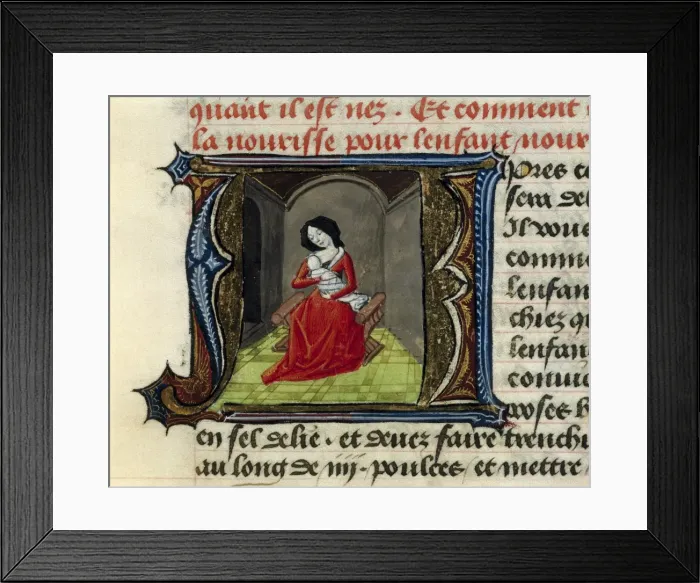 quant il est nez . Et comment
la nourisse pour lenfant nour
pres ce
sera de
Il vous
comme
lenfan
chiez q
lenfan
convic
poses b
en sel delie . et devez faire trenche
au long de iiij . poulces et mettre